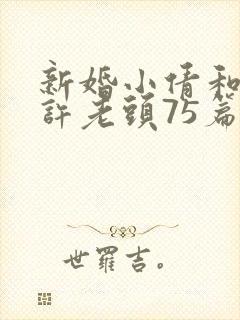 新婚小倩和
許老頭75篇
世羅吉。